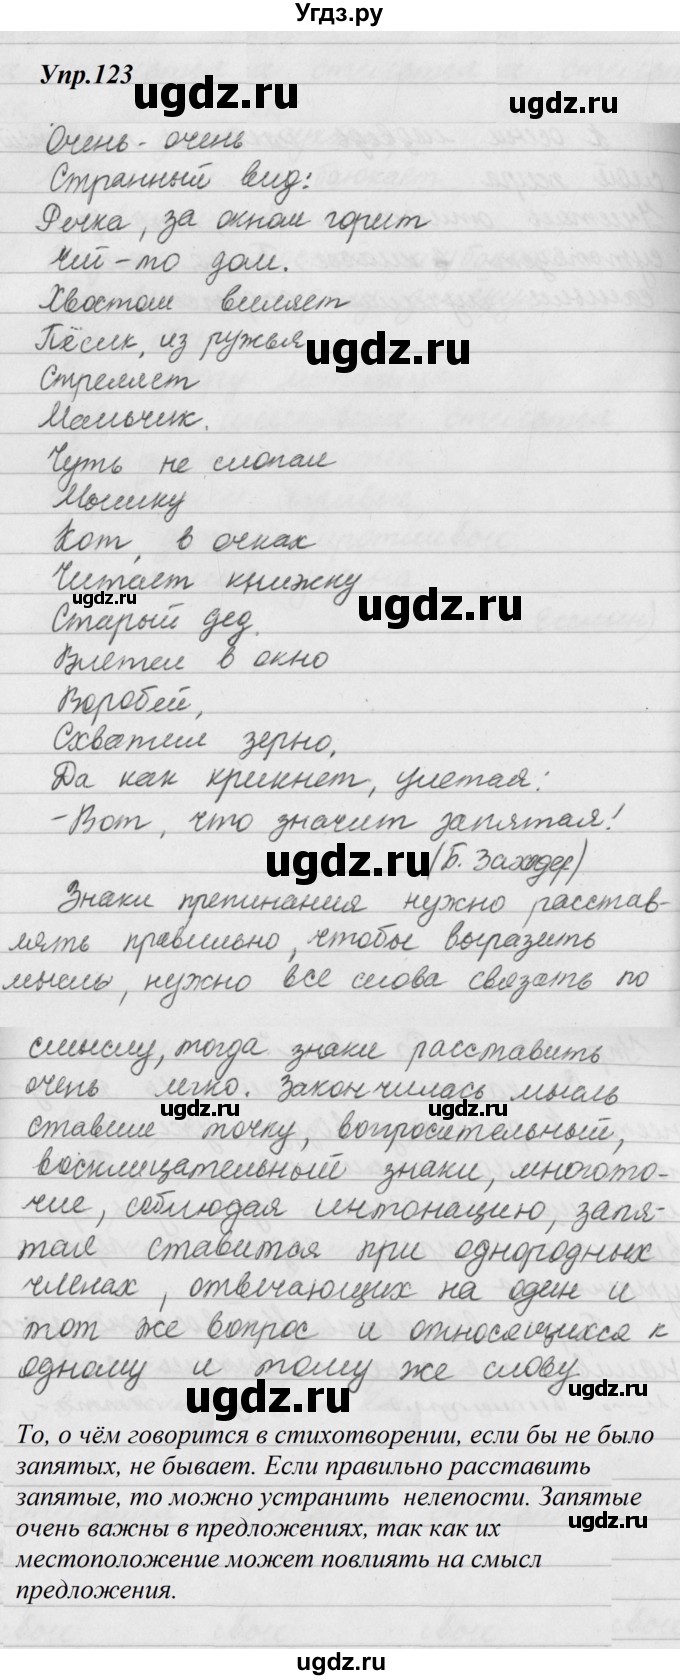 Угдз.ру
Упр.123
ugdz.ru
Очень-очень
Странный вид:
Речка, за окном горит
Чей-то дом.
Хвостом виляет
Пёсик, из ружья
ugdz.ru
Стреляет
Мальчик.
Чуть не слопал
Мышку
Кот, в очках
Читает книжку
ugdz.ru
ugdz.ru
Старый дед.
Влетел в окно
Воробей,
Схватил зерно,
Да как крикнет, улетая:
-Вот, что значит запятая!
ugdz.ru
(Б. Заходер)
Знаки препинания нужно расстав-
лять правильно, чтобы выразить
мысль, нужно все слова связать по
смыслу, тогда знаки расставить
очень легко. Закончилась мысль
ugdz.ru
ugdz.ru
ставим точку, вопросительный,
восклицательный знаки, многото-
чие, соблюдая интонацию, запя-
тая ставится при однородных
членах, отвечающих на один и
тот же вопрос и относящихся к
одному и тому же слову
ugdz.ru
ugdz.ru
То, о чём говорится в стихотворении, если бы не было
запятых, не бывает. Если правильно расставить
запятые, то можно устранить нелепости. Запятые
очень важны в предложениях, так как их
ugdz.ru
местоположение может повлиять на смысл
предложения.
ugdz.ru